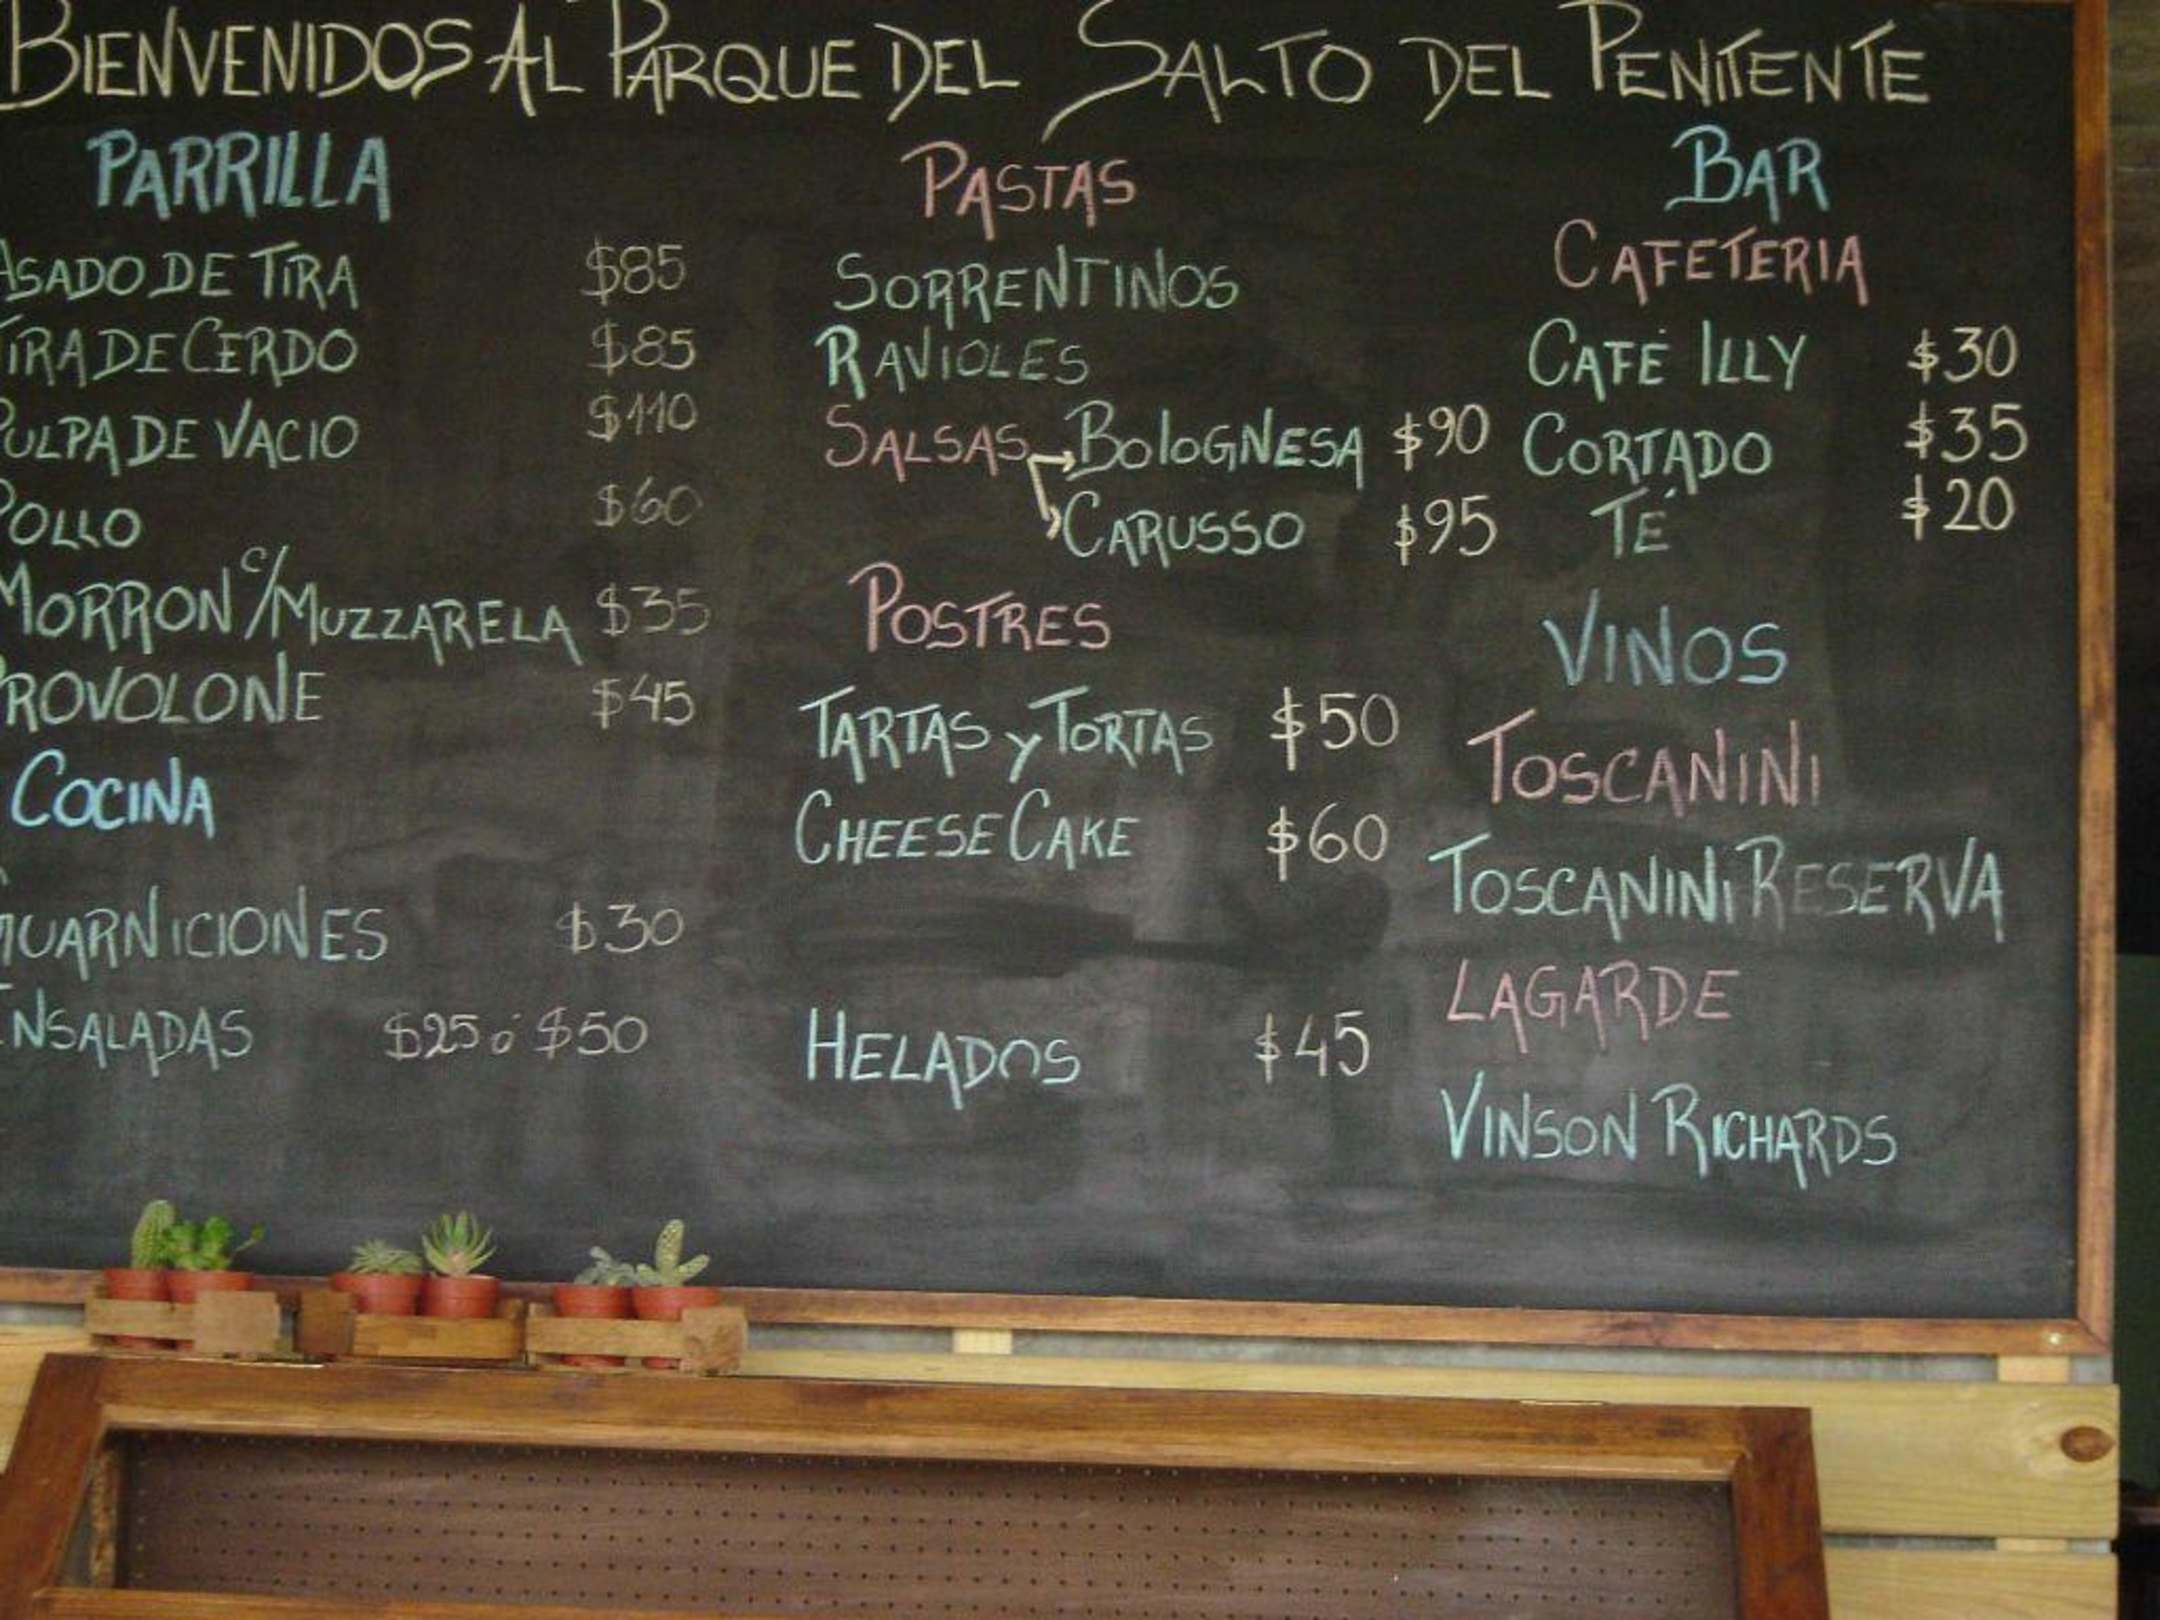 BIENVENIDOS AL PARQUE DEL SALTO DEL PENITENTE
PARRILLA
ASADO DE TIRA $85
TIRA DE CERDO $85
PULPA DE VACIO $110
POLLO $60
MORRON C/MUZZARELA $35
PROVOLONE $45
COCINA
GUARNICIONES $30
ENSALADAS $25 ó $50
PASTAS
SORRENTINOS
RAVIOLES
SALSAS BOLOGNESA $90
CARUSSO $95
POSTRES
TARTAS y TORTAS $50
CHEESE CAKE $60
HELADOS $45
BAR
CAFETERIA
CAFÉ ILLY $30
CORTADO $35
TÉ $20
VINOS
TOSCANINI
TOSCANINI RESERVA
LAGARDE
VINSON RICHARDS